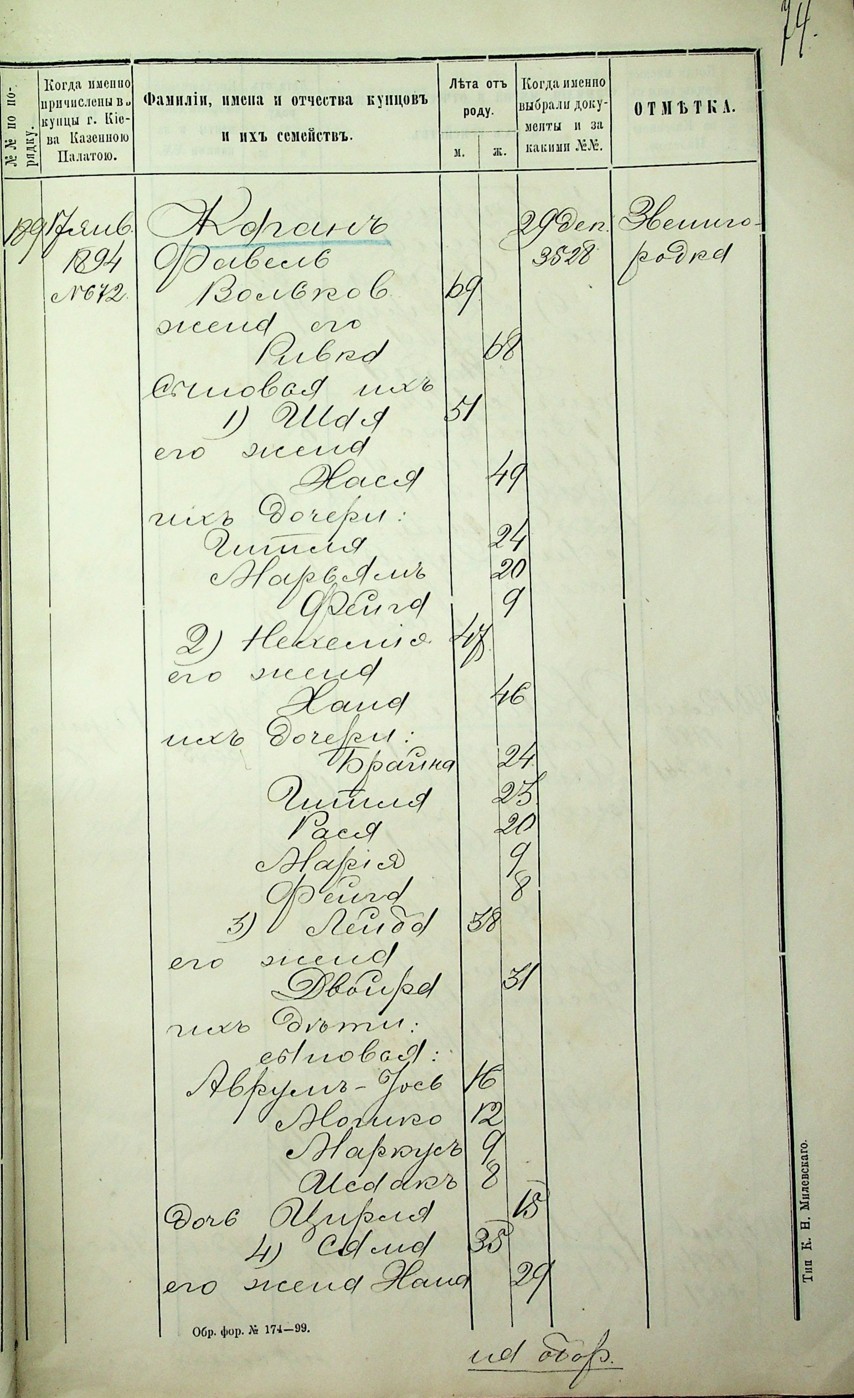 74.
№№ по по-
рядку.
Когда именно
причислены въ
купцы г. Кіе-
ва Казенною
Палатою.
Фамиліи, имена и отчества купцовъ
и ихъ семействъ.
Лѣта отъ
роду.
м.
ж.
Когда именно
выбрали доку-
менты и за
какими №№.
ОТМѢТКА.
189 17 янв. Кфранъ 29 Дек. Звениго-
1894 Фавель 3528 родка
№ 672 Вольковъ 69
жена его
Ривка 68
Сыновья ихъ
1) Шая 51
его жена
Хася 49
ихъ дочери:
Гитля 24
Марьямъ 20
Фейга 9
2) Нехемія 47
его жена
Хана 46
ихъ дочери:
Брайна 24
Гитля 23
Рася 20
Марія 9
Фейга 8
3) Лейба 38
его жена
Двойра 31
ихъ дѣти:
сыновья:
Аврумъ-Іось 16
Мошко 12
Маркусъ 9
Исаакъ 8
дочь Цирля 15
4) Сама 35
его жена Хана 29
Обр. фор. № 174—99.
на обор.
Тип К. Н. Милевскаго.